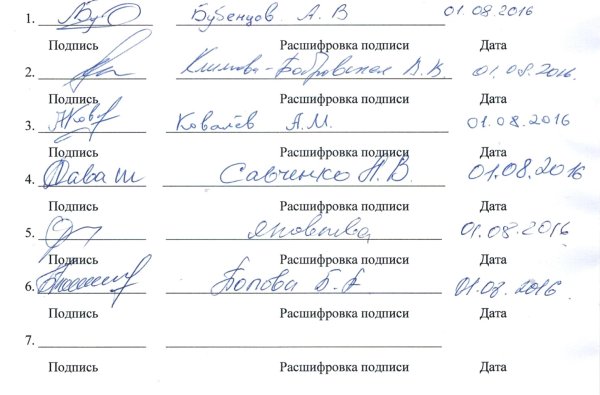 1. Бубенцов А. В 01.08.2016
Подпись Расшифровка подписи Дата
2. Климова-Бобровская В.В. 01.08.2016.
Подпись Расшифровка подписи Дата
3. Ковалёв А.М. 01.08.2016
Подпись Расшифровка подписи Дата
4. Савченко Н.В. 01.08.2016
Подпись Расшифровка подписи Дата
5. 01.08.2016
Подпись Расшифровка подписи Дата
6. Попова Б.А 01.08.2016.
Подпись Расшифровка подписи Дата
7.
Подпись Расшифровка подписи Дата